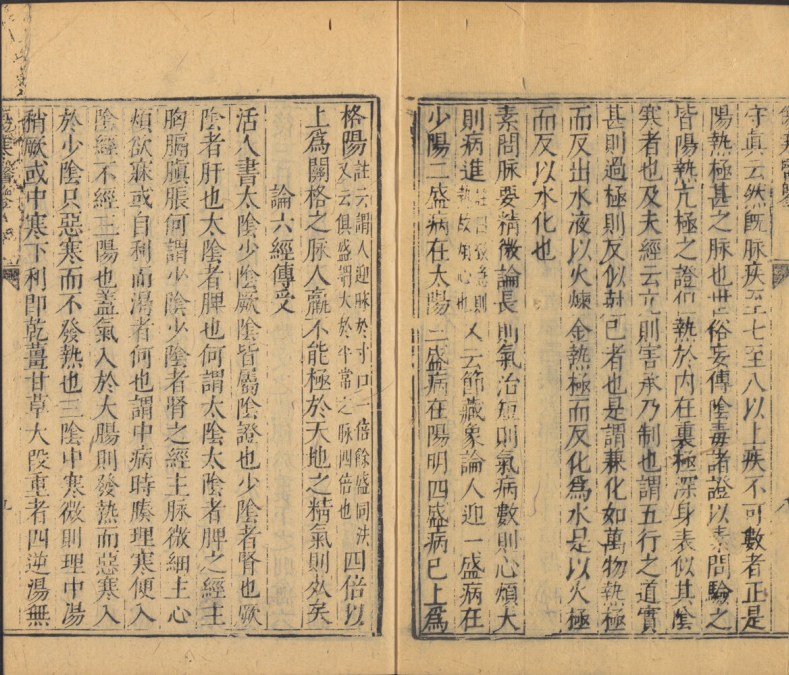 守真云然既脉疾至七至八以上疾不可數者正是
陽熱極甚之脉也世俗妄傳陰毒諸證以素問驗之
皆陽熱亢極之證但熱於内在裏極深身表似其陰
寒者也及夫經云亢則害承乃制也謂五行之道實
甚則過極則反似尅己者也是謂兼化如萬物熱極
而反出水液以火煉金熱極而反化爲水是以火極
而反以水化也
素問脉要精微論長則氣治短則氣病數則心煩大
則病進 又云節藏象論人迎一盛病在
少陽二盛病在太陽三盛病在陽明四盛病已上爲
格陽註云謂人迎脉於寸口一倍餘盛同法又云俱盛謂大於平常之脉四倍也四倍以
上爲關格之脉人羸不能極於天地之精氣則死矣
論六經傳受
活人書太陰少陰厥陰皆屬陰證也少陰者腎也厥
陰者肝也太陰者脾也何謂太陰太陰者脾之經主
胸膈䐜脹何謂少陰少陰者腎之經主脉微細主心
煩欲寐或自利而渴者何也謂中病時腠理寒便入
陰經不經三陽也蓋氣入於大腸則發熱而惡寒入
於少陰只惡寒而不發熱也三陰中寒微則理中湯
稍厥或中寒下利即乾薑甘草大段重者四逆湯無